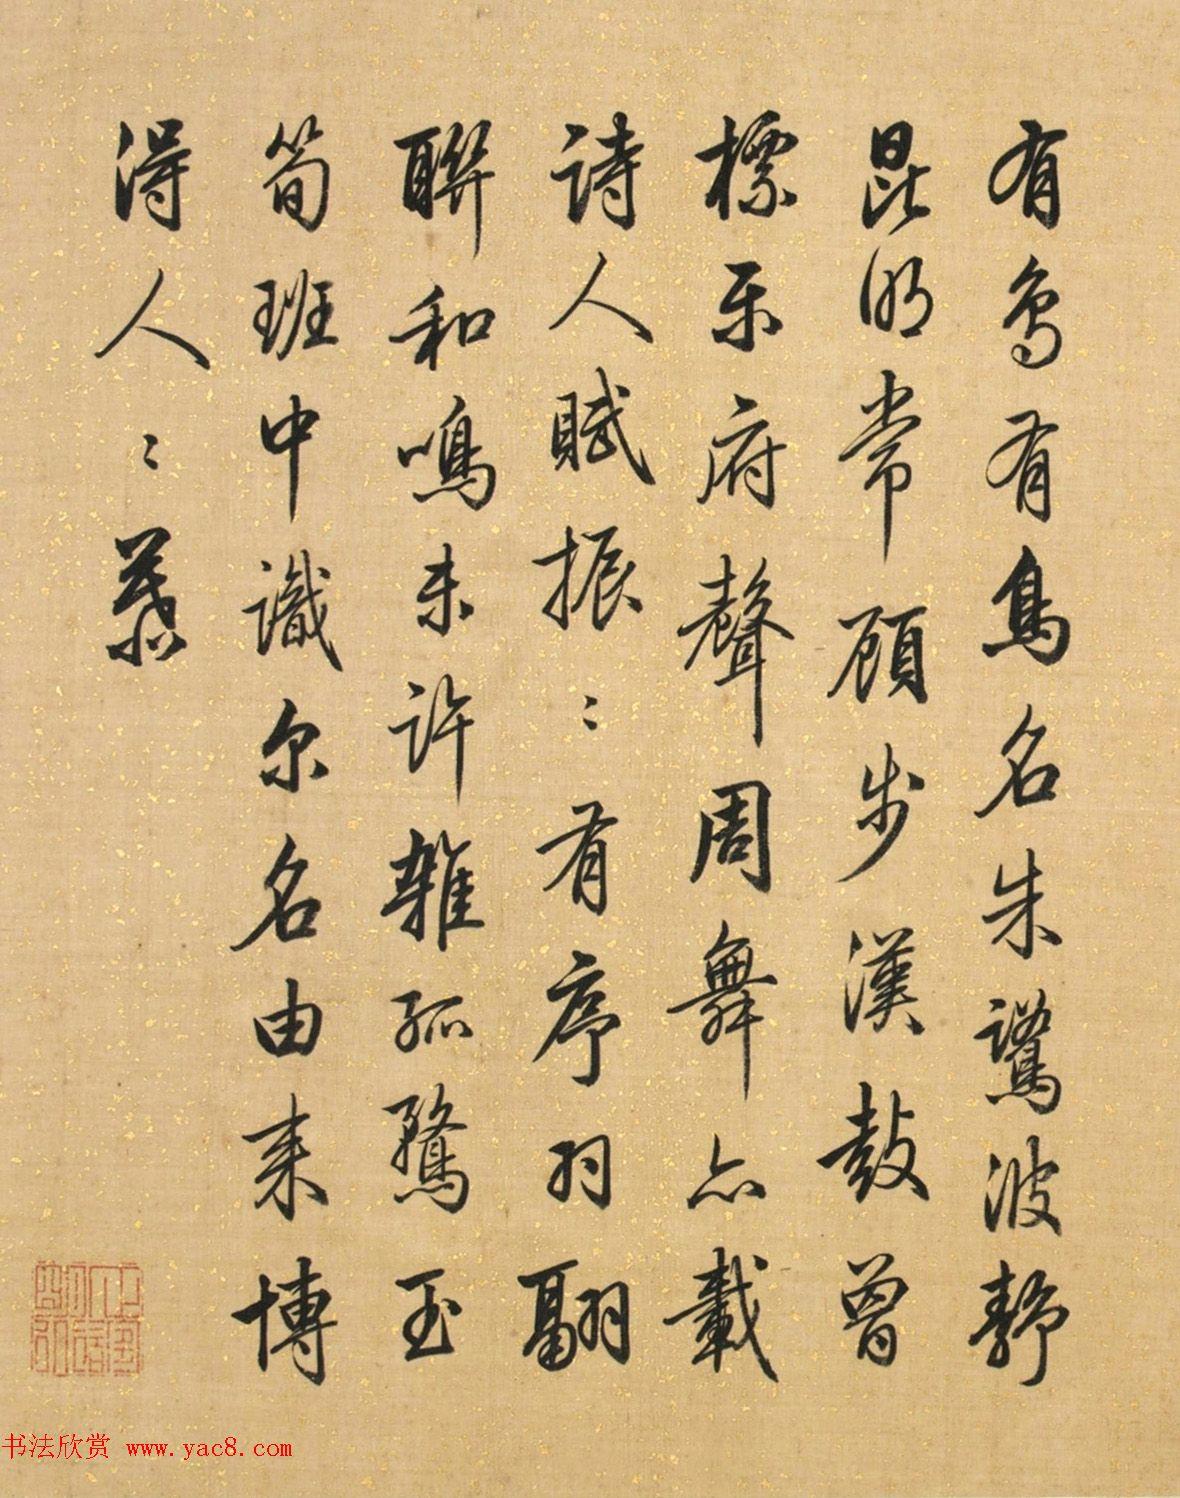 有鳥有鳥名朱鷺波静
昆明常顧步漢鼓曽
標樂府聲周舞亦載
詩人賦振〻有序羽翩
聯和鳴未許雜孤鶩玉
筍班中識尔名由来博
得人〻慕
书法欣赏 www.yac8.com